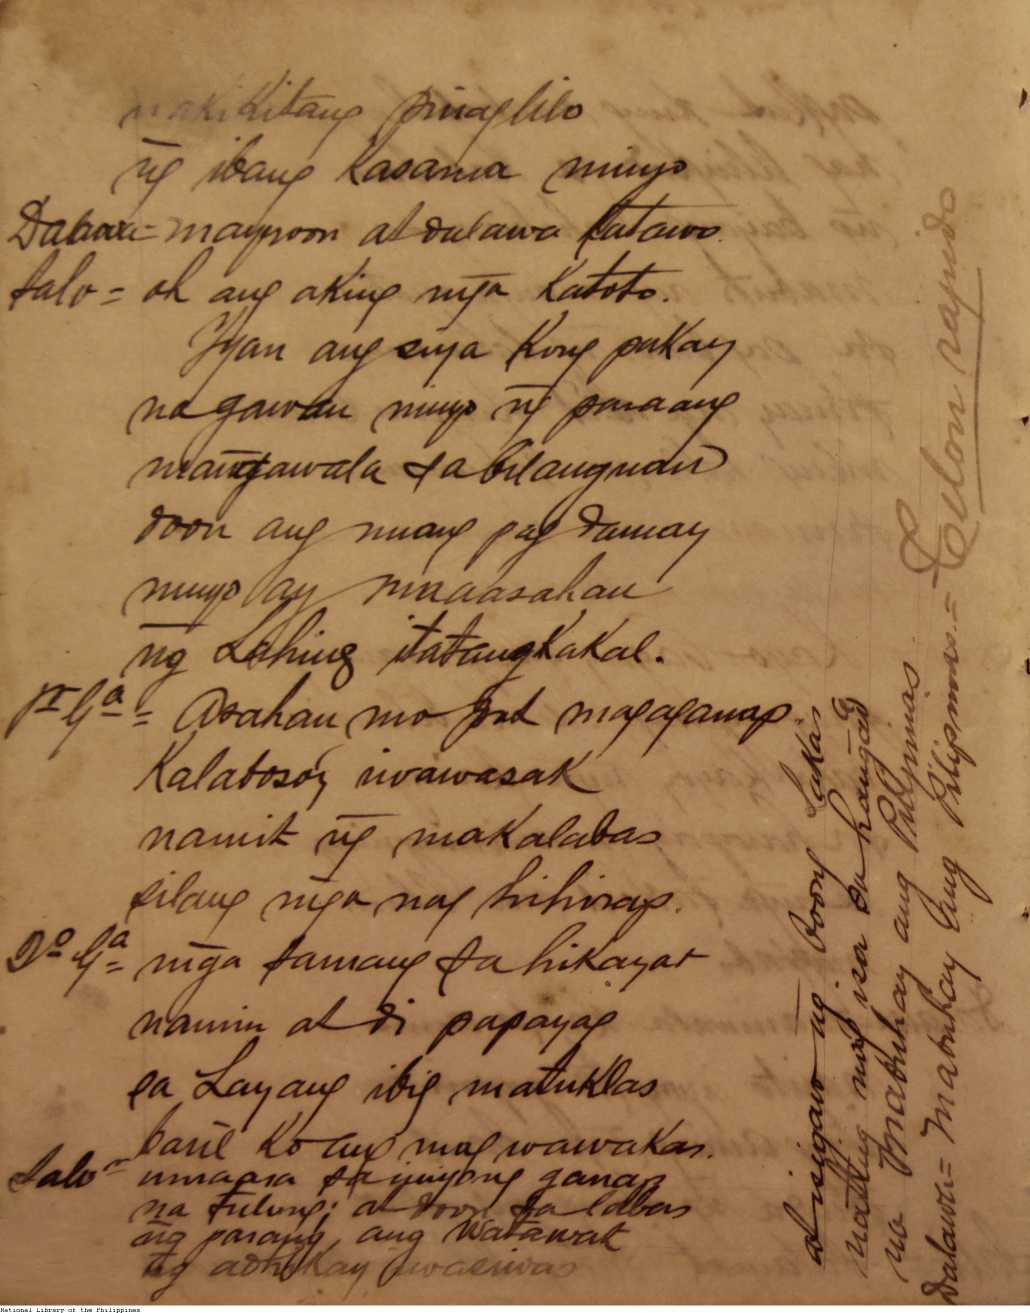 nakikitang pinaglilo
ng̃ ibang kasama ninyo
Dalawa = mayroon at dalawa katawo.
Salo = oh ang aking mga Katoto.
Iyan ang siya Kong pakay
na gawan ninyo ng̃ paraang
mang̃awala sa bilanguan
doon ang muang pag damay
ninyo ay maaasahan
ng̃ Lahing itatangkakal.
1ª Gª = Asahan mo pat magaganap
Kalabosoy wawasak
namit ng̃ makalabas
silang mg̃a nag hihirap.
2º Gª = mg̃a samang sa hikayat
namin at di papayag
sa Layang ibig matuklas
baril ko ang mag wawakas.
Salo = umaasa sa inyong ganap
na tulong; at doon sa labas
ng̃ parang ang Watawat
ng adhikay iwasiwas
at isigaw ng̃ boong Lakas
nating may isa sa hang̃ad
na Mabuhay ang Pilipinas
Dalawa = Mabuhay Ang Pilipinas. = Telon rapido
National Library of the Philippines